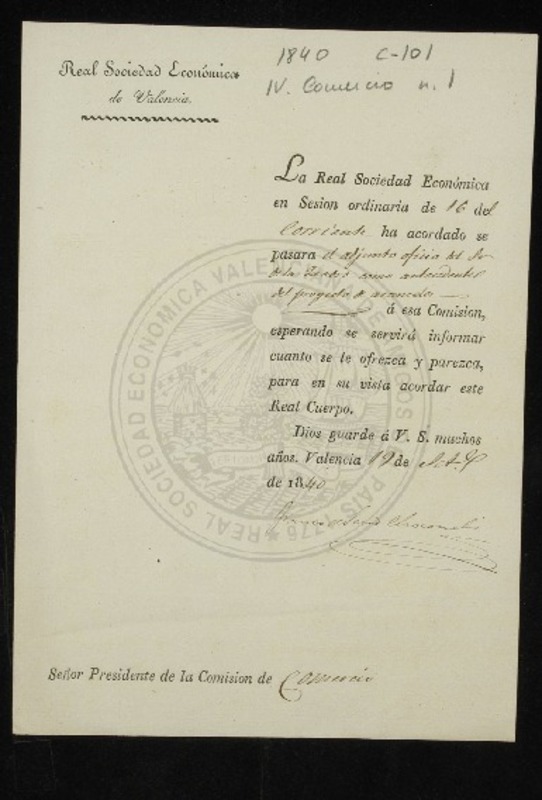 1840 C-101
IV. Comercio n. 1
Real Sociedad Económica
de Valencia.
La Real Sociedad Económica
en Sesion ordinaria de 16 del
Corriente ha acordado se
pasara el adjunto oficio del
como antecedente
del proyecto de aranceles
á esa Comision,
esperando se servirá informar
cuanto se le ofrezca y parezca,
para en su vista acordar este
Real Cuerpo.
Dios guarde á V. S. muchos
años. Valencia 19 de
de 1840
Señor Presidente de la Comision de Comercio
REAL SOCIEDAD ECONOMICA VALENCIANA DE AMIGOS DEL PAIS 1776